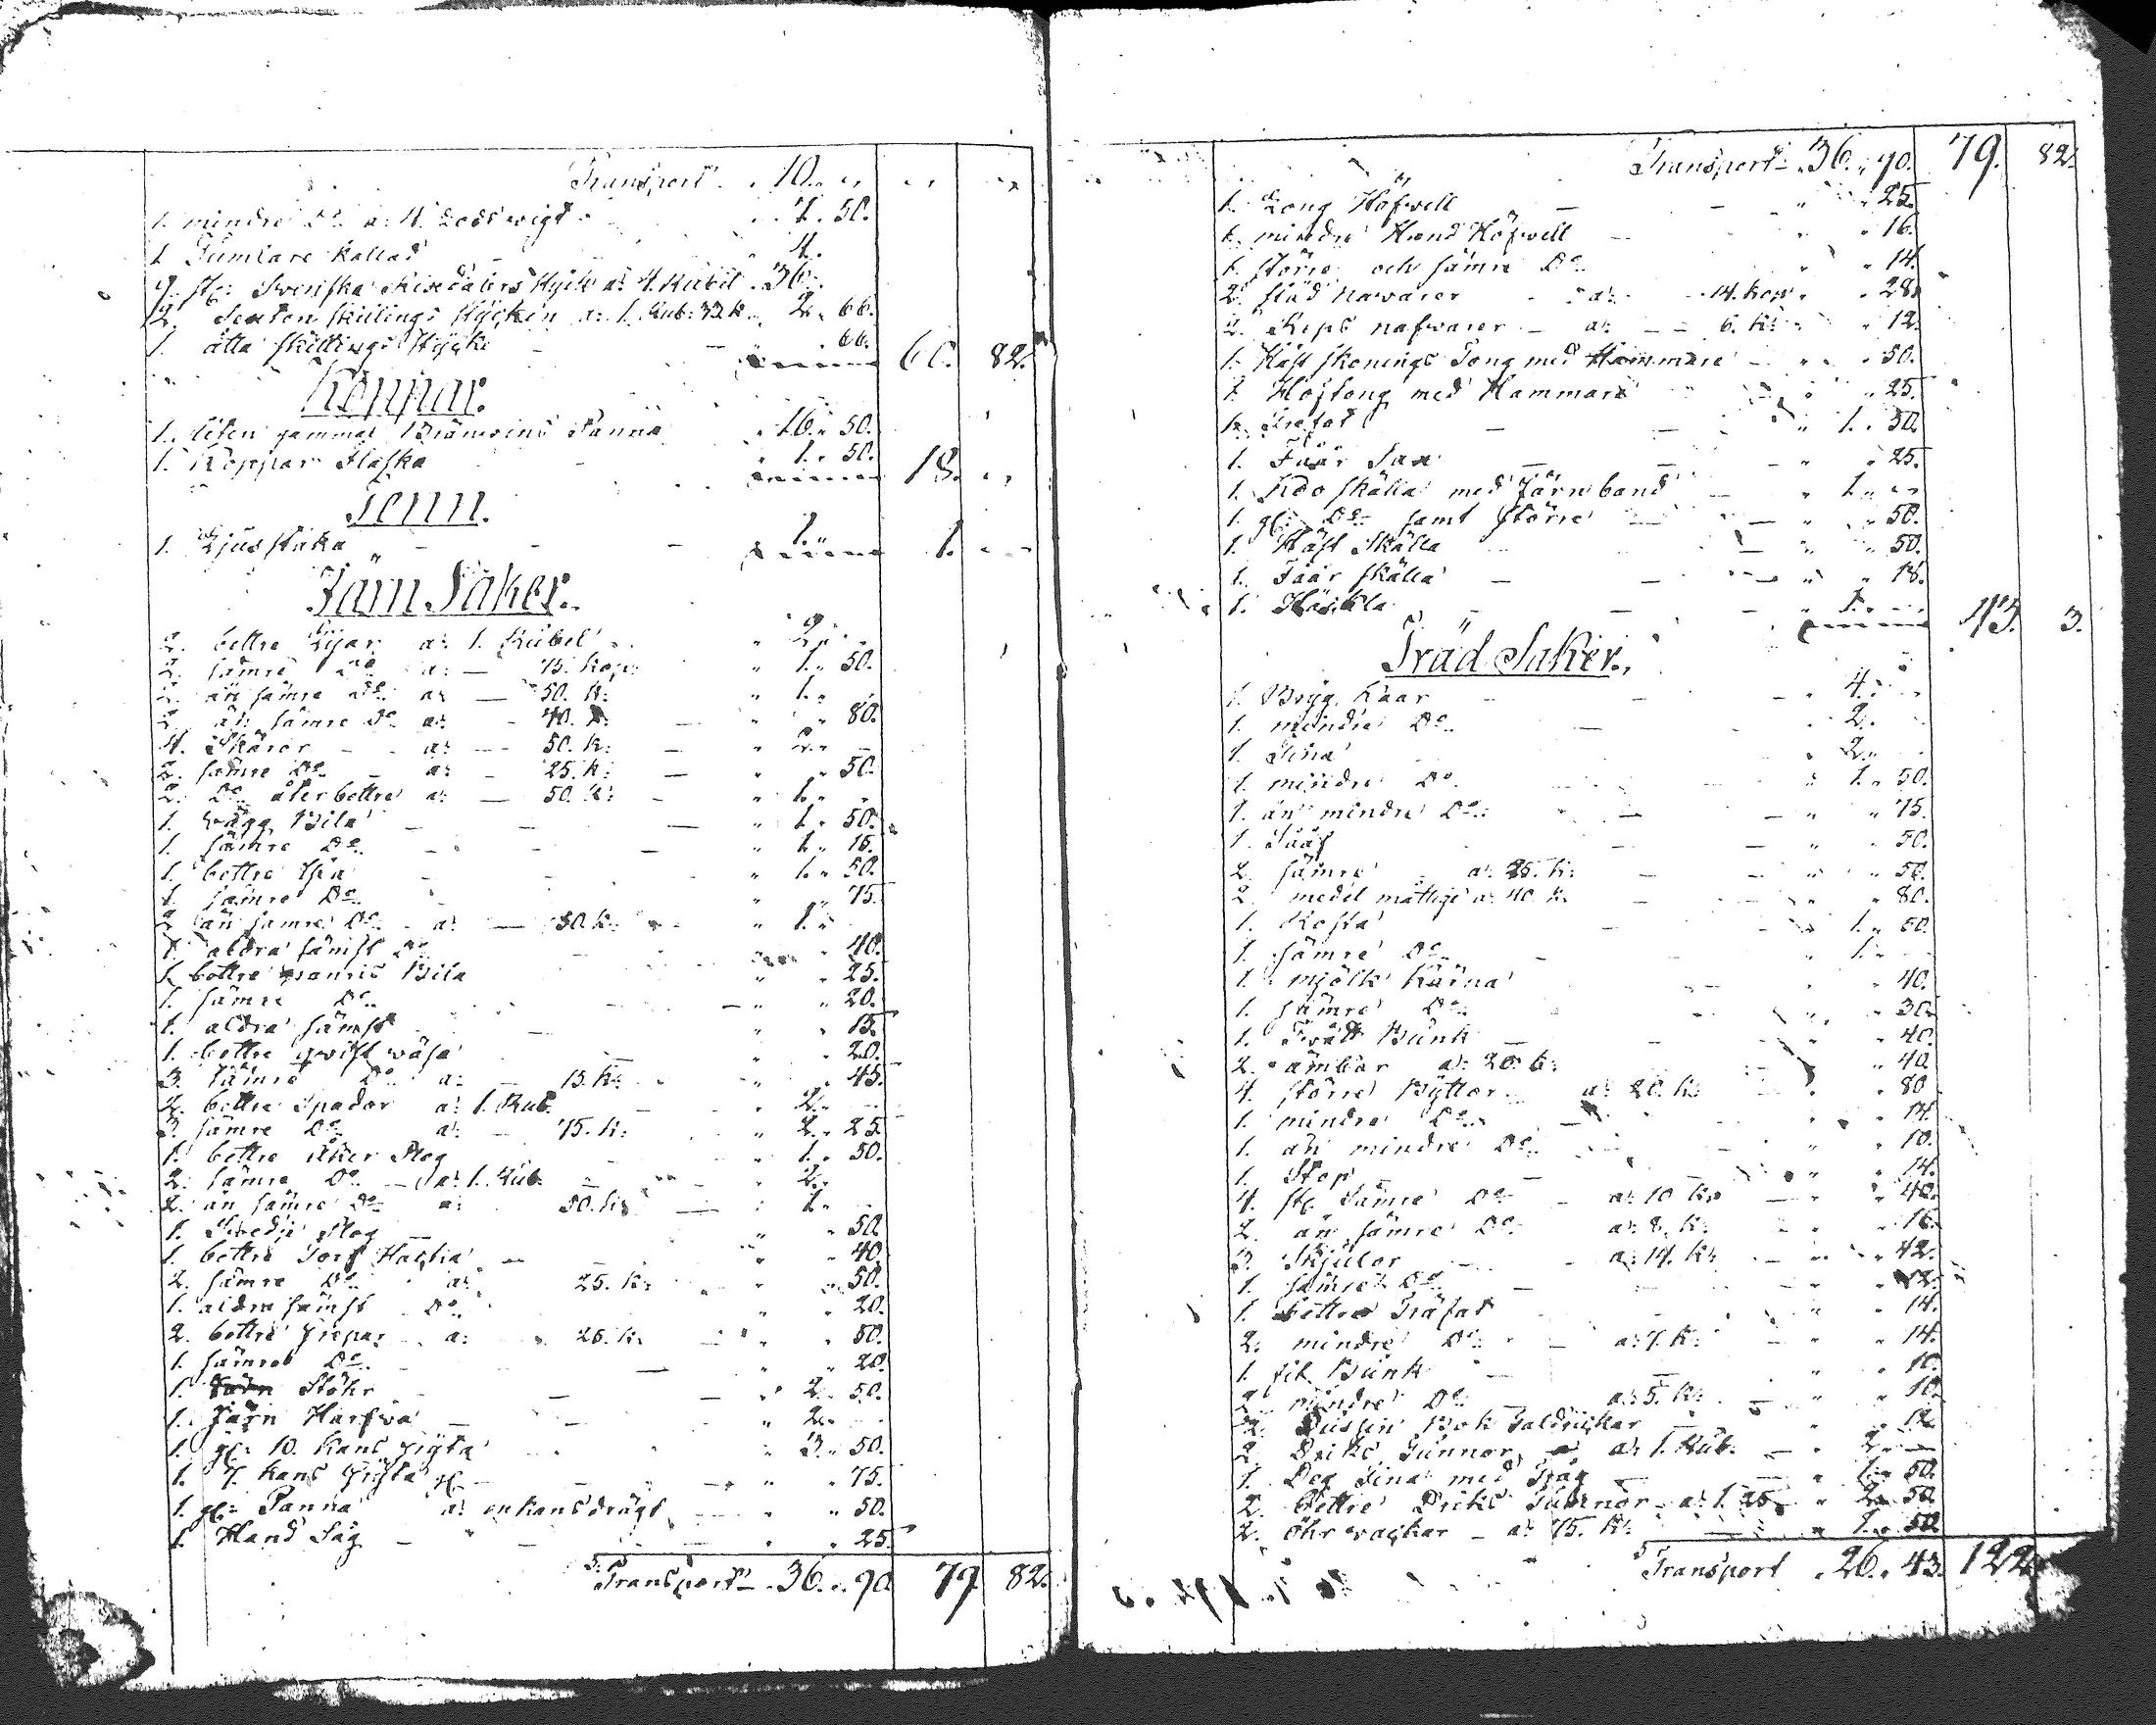 Transport „ 10. „ „
1. mindre Do a: 4. Lods wigt „ 7. 50.
1 Tumlare kallad 4.
9. st: Svenska Riksdalers stycke a: 4. Rubel 36.
2. Sexton skillings stycken a: 1. Rub: 33 k. 2. 66.
1. åtta skillings stycke 66. 60. 82.
Koppar.
1. liten gammal Brämvins Panna 16. 50.
1. Koppar Flaska 1. 50. 18. „
Tenn.
1. Ljusstaka 1. „ 1. „
Järn Saker.
2. bettre Lijar a: 1. Rubel 2. „
2. sämre Do a: 75. kop: 1. 50.
2. än sämre Do a: 50. k. 1. „
2. än sämre Do a: 40. k. 80.
4. Skäror a: 50. k: 2. „
2. sämre Do a: 25. k: 50.
2. Do åter bettre a: 50. k: 1. „
1. vägg Bila 1. 50.
1. sämre Do 1. 15.
1. bettre Yxa 1. 50.
1 sämre Do 75.
2 än sämre Do a: 50. k. 1. „
1. aldra sämst Do 40.
1. bettre Bila 25.
1. sämre Do 20.
1. aldra sämst 15.
1. bettre qvist 20.
3. sämre Do a: 15. k: 45.
2. bettre Spador a: 1. Rub. 2. „
3. sämre Do a: 75. k: 2. 25.
1. bettre åker Plog 1. 50.
2. sämre Do a: 1. Rub. 2. „
2. än sämre Do a: 50. k: 1. „
1. Plog 50.
1. bettre Torf Hacka 40.
2. sämre Do a: 25. k: 50.
1. aldra sämst Do 20.
2. bettre a: 25. k: 50.
1. sämre Do 20.
1. Störr 2. 50.
1. Järn Harfva 2. „
1. gl: 10. kans gryta 3. 50.
1. 7. kans Gryta gl. 75.
1. gl: Panna a: en kans drägt 50.
1. Hand Såg 25.
Transport „ 36. „ 90. 79 82.
Transport „ 36. „ 90. 79. 82.
1. Long Höfvell 25.
1. mindre Hand Höfvell 16.
1. större och sämre Do 14.
2. navarer a: 14. kop: 28.
2. Reps nafvarer a: 6. k: 12.
1. Häst skonings Tong med Hammare 50.
1. Hoftong med Hammare 25.
1. 1. 50.
1. Fåår Sax 25.
1. Koo skälla med Järn band 1. „
1. gl: Do samt större 50.
1. Häst Skälla 50.
1. Fåår skälla 18.
1. Häckla 1. „ 43. 3.
Träd Saker.
1. Bryg Kaar 4. „
1. mindre Do 2.
1. Tina 2. „
1. mindre Do 1. 50.
1. än mindre Do 75.
1. Sååf 50.
2. sämre a: 25. k: 50.
2 medel måttige a: 40. k. 80.
1. 1. 50.
1. sämre Do 1. „
1. mjölk Kärna 40.
1. sämre Do 30.
1. Tvätt Bunk 40.
2. ämbar a: 20. k: 40.
4. större Byttor a: 20. k: 80
1. mindre Do 14.
1. än mindre Do 10.
1. Stop 14.
4. st. Sämre Do a: 10 k: 40.
2. än sämre Do a: 8. k: 16.
3. Skjulor a: 14. k: 42.
1. sämre Do 12.
1. bettre Träfat 14.
2. mindre Do a: 7. k: 14.
1. fil. Bunk 10.
2 mindre Do a: 5. k: 10.
2. Dussin 12.
2. Driks Tunnor a: 1. Rub: 2. „
1. Deg Tina med Tråg 1. 50.
2. bettre Driks Tunnor a: 1. 25 2. 50.
2. öhr a: 75. k: 1. 50.
Transport „ 26. „ 43. 122